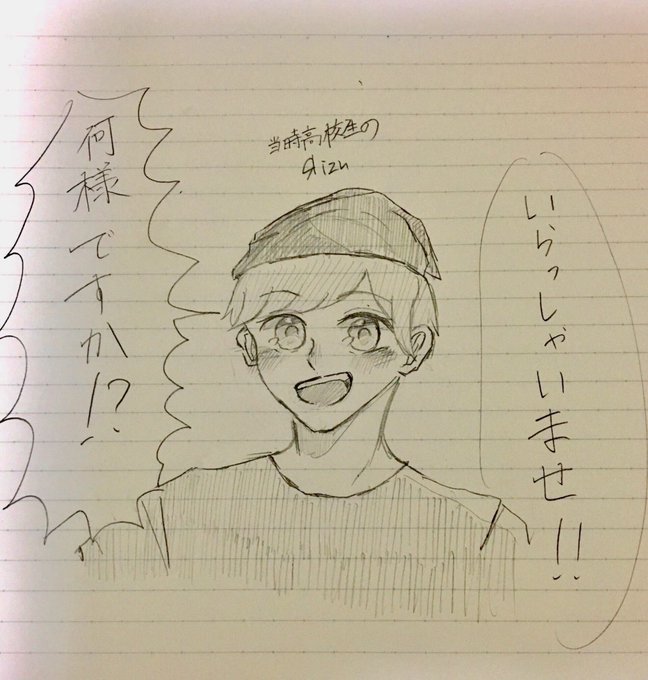 当時高校生の
Яizu
いらっしゃいませ!!
何様ですか!?